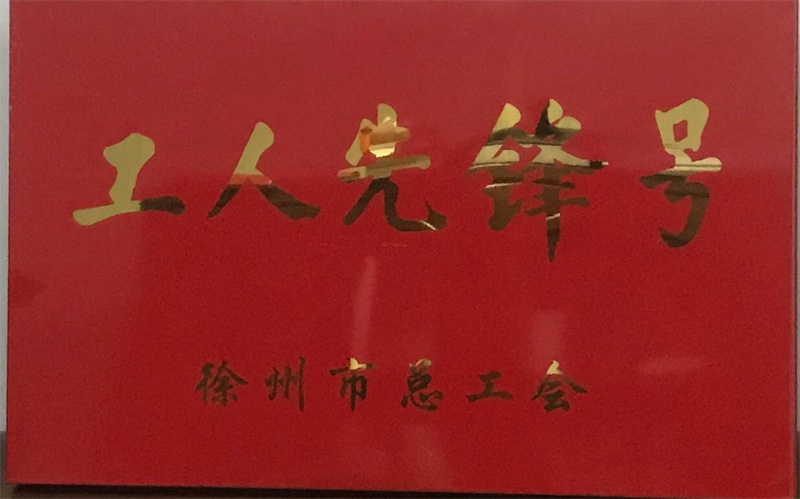 工人先锋号
徐州市总工会